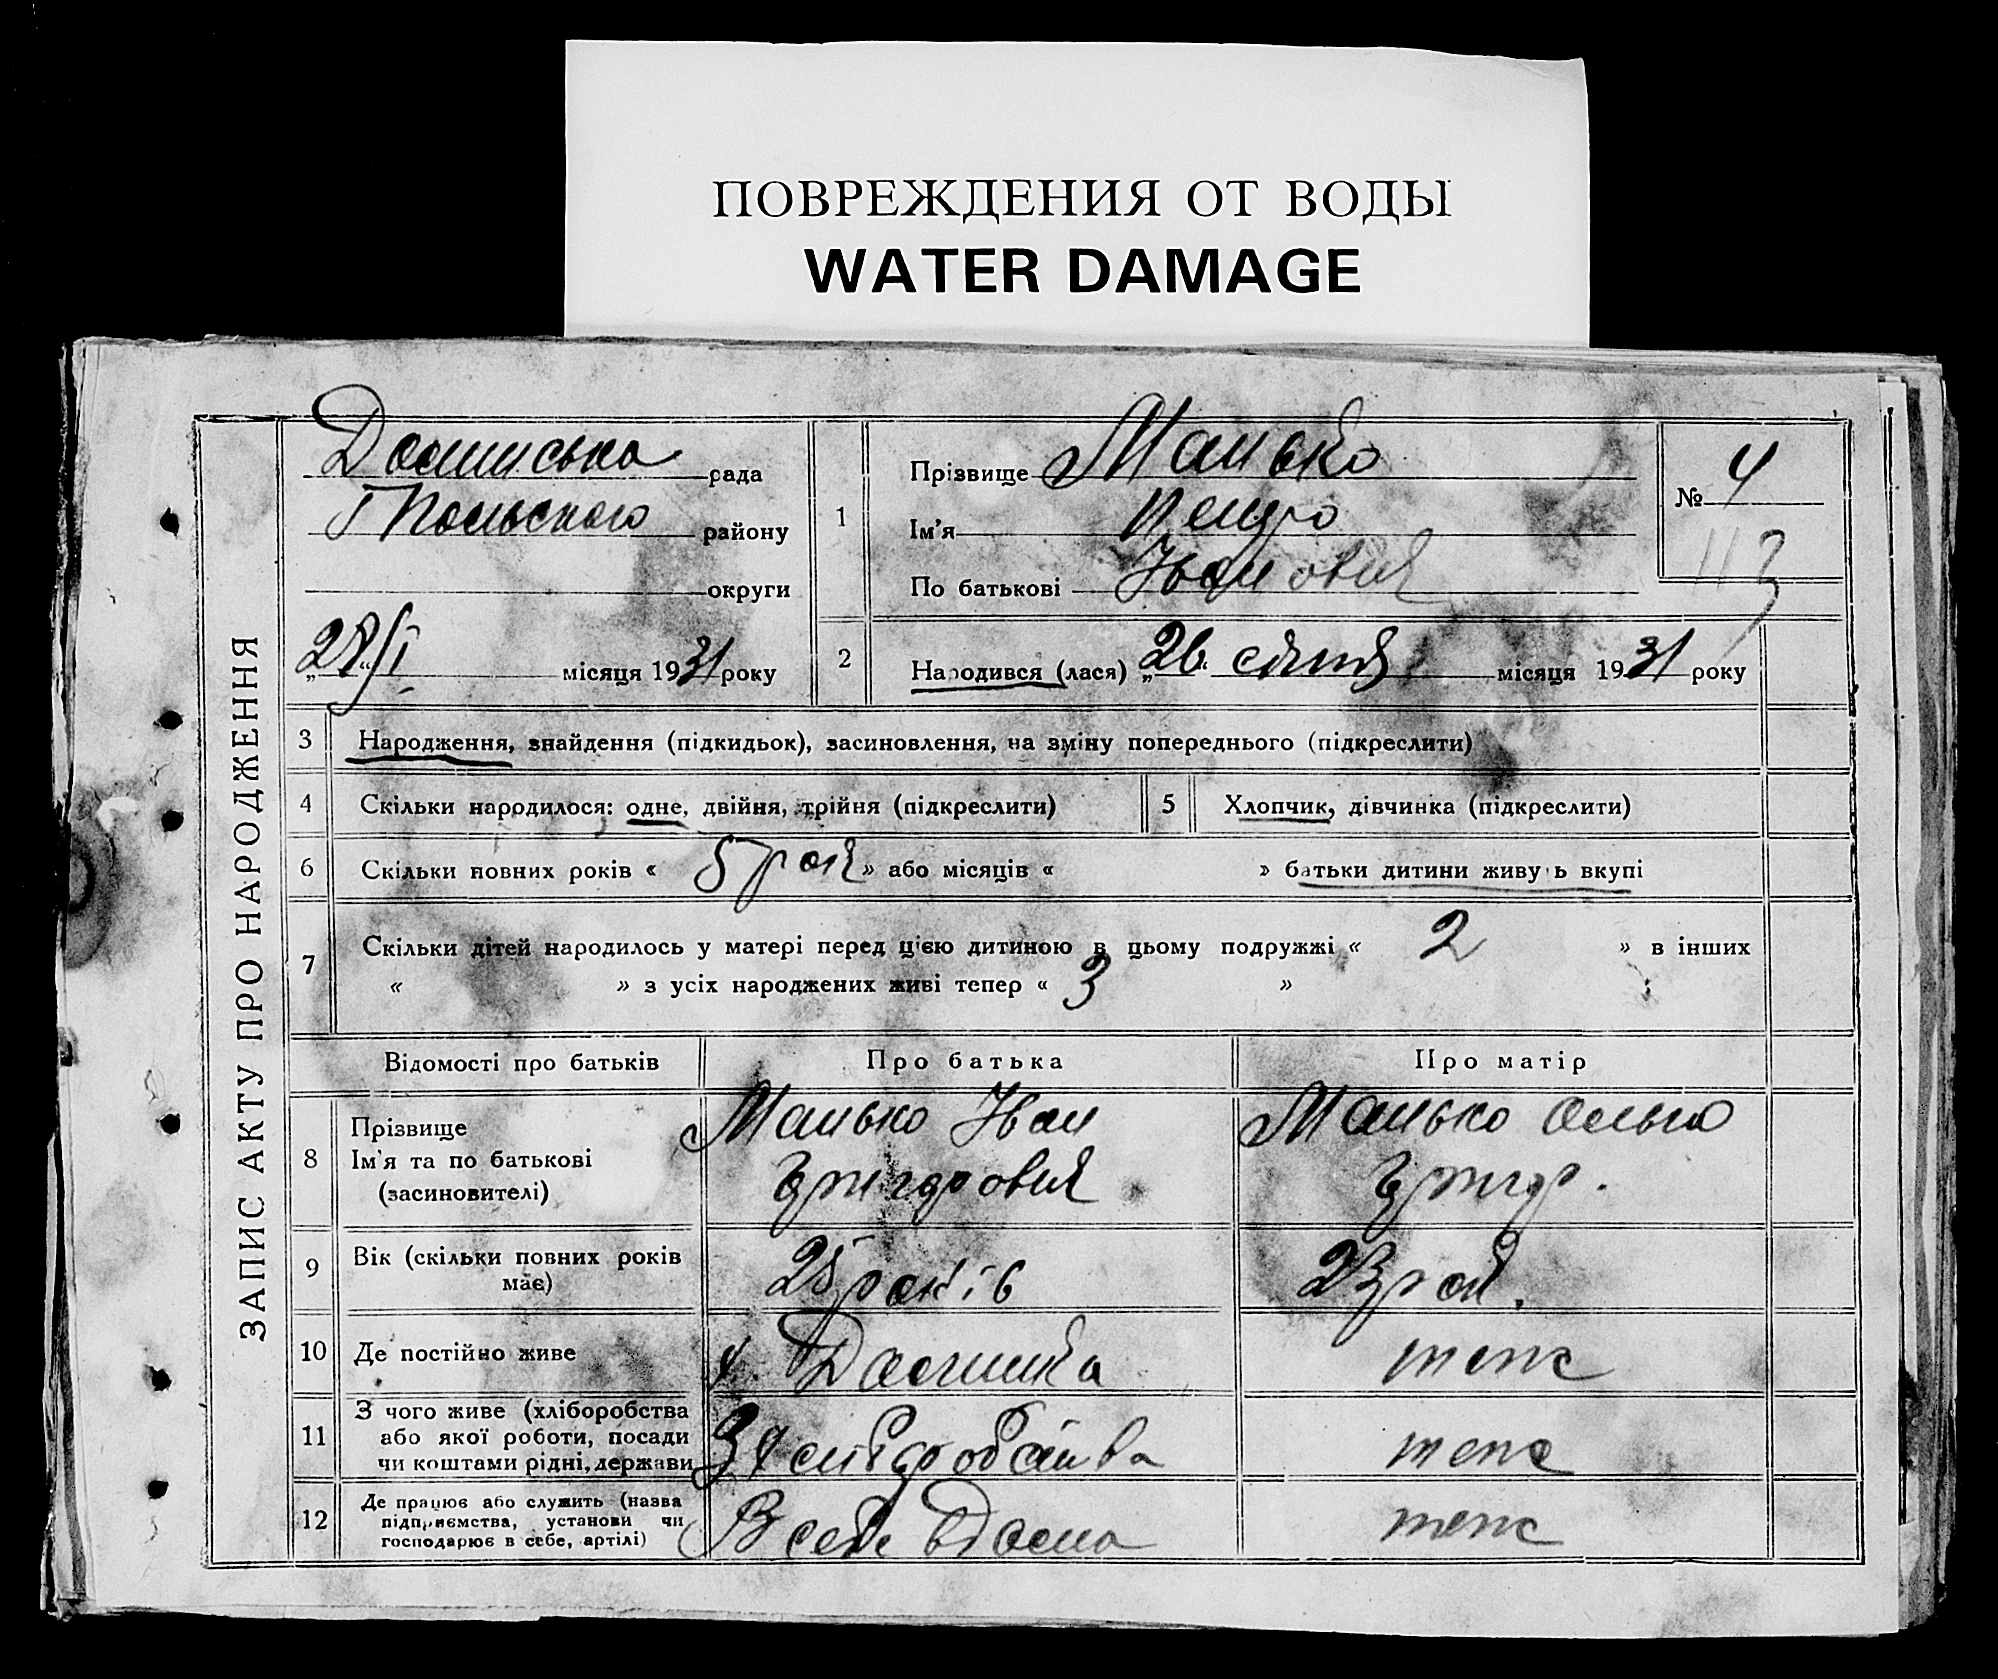 ПОВРЕЖДЕНИЯ ОТ ВОДЫ
WATER DAMAGE
ЗАПИС АКТУ ПРО НАРОДЖЕННЯ
рада
району
округи
„28“/I місяця 1931 року
1
Прізвище Манько
Ім'я Петро
По батькові Іванович
№ 4
113
2
Народився (лася) „26“ січня місяця 1931 року
3 Народження, знайдення (підкидьок), засиновлення, на зміну попереднього (підкреслити)
4 Скільки народилося: одне, двійня, трійня (підкреслити)
5 Хлопчик, дівчинка (підкреслити)
6 Скільки повних років « 5 рок » або місяців « » батьки дитини живуть вкупі
7 Скільки дітей народилось у матері перед цією дитиною в цьому подружжі « 2 » в інших
« » з усіх народжених живі тепер « 3 »
Відомості про батьків
Про батька
Про матір
8 Прізвище
Ім'я та по батькові
(засиновителі)
Манько Іван
Григорович
Манько Ольга
Григор.
9 Вік (скільки повних років
має)
25 років
23 рок.
10 Де постійно живе
теж
11 З чого живе (хліборобства
або якої роботи, посади
чи коштами рідні, держави
З хліборобства
теж
12 Де працює або служить (назва
підприємства, установи чи
господарює в себе, артілі)
В себе вдома
теж